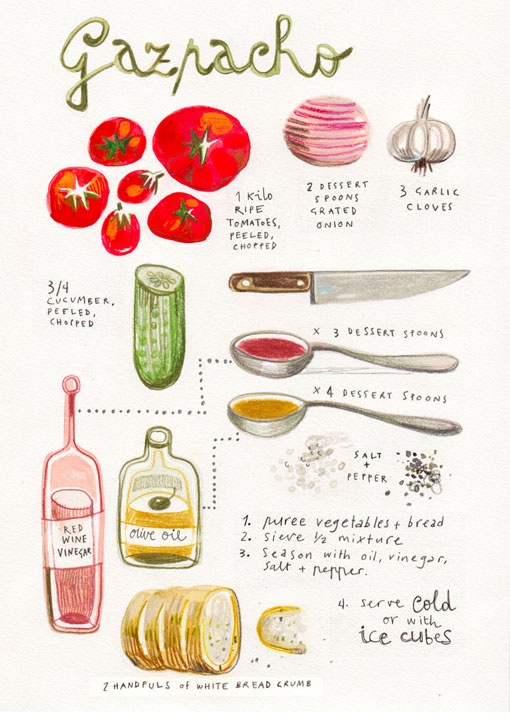 Gazpacho
1 Kilo
RIPE
TOMATOES,
PEELED,
CHOPPED
2 DESSERT
SPOONS
GRATED
ONION
3 GARLIC
CLOVES
3/4
CUCUMBER,
PEELED,
CHOPPED
x 3 DESSERT SPOONS
x 4 DESSERT SPOONS
SALT
+
PEPPER
RED
WINE
VINEGAR
olive oil
1. puree vegetables + bread
2. sieve 1/2 mixture
3. Season with oil, vinegar,
salt + pepper.
4. serve cold
or with
ice cubes
2 HANDFULS of WHITE BREAD CRUMB